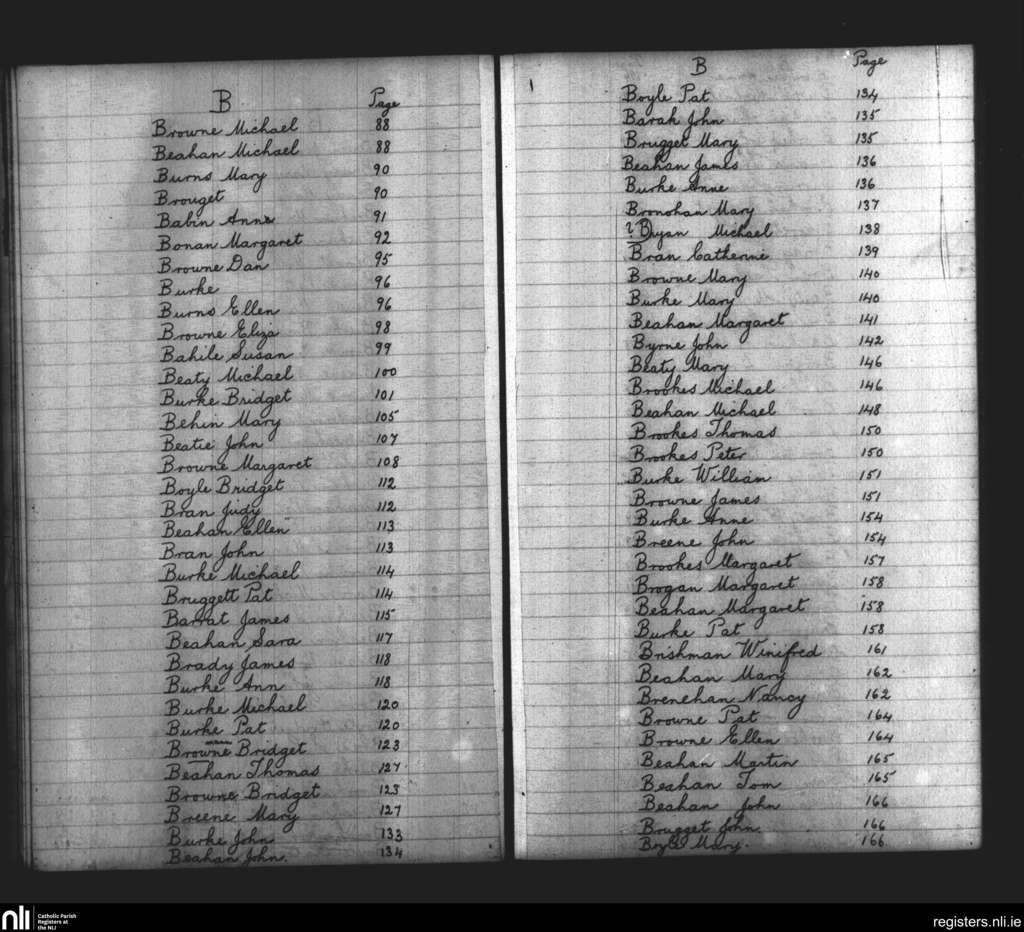 B
Page
Browne Michael 88
Beahan Michael 88
Burns Mary 90
Brouget 90
Babin Anne 91
Bonan Margaret 92
Browne Dan 95
Burke 96
Burns Ellen 96
Browne Eliza 98
Bahile Susan 99
Beaty Michael 100
Burke Bridget 101
Behin Mary 105
Beatie John 107
Browne Margaret 108
Boyle Bridget 112
Bran Judy 112
Beahan Ellen 113
Bran John 113
Burke Michael 114
Bruggett Pat 114
Barrat James 115
Beahan Sara 117
Brady James 118
Burke Ann 118
Burke Michael 120
Burke Pat 120
Browne Bridget 123
Beahan Thomas 127
Browne Bridget 123
Breene Mary 127
Burke John 133
Beahan John. 134
B
Page
Boyle Pat 134
Barak John 135
Brugget Mary 135
Beahan James 136
Burke Anne 136
Bronohan Mary 137
? Bryan Michael 138
Bran Catherine 139
Browne Mary 140
Burke Mary 140
Beahan Margaret 141
Byrne John 142
Beaty Mary 146
Brookes Michael 146
Beahan Michael 148
Brookes Thomas 150
Brookes Peter 150
Burke William 151
Browne James 151
Burke Anne 154
Breene John 154
Brookes Margaret 157
Brogan Margaret 158
Beahan Margaret 158
Burke Pat 158
Brishman Winifred 161
Beahan Mary 162
Brenehan Nancy 162
Browne Pat 164
Browne Ellen 164
Beahan Martin 165
Beahan Tom 165
Beahan John 166
Brugget John 166
Boyle Mary. 166
nli
Catholic Parish
Registers at
the NLI
registers.nli.ie